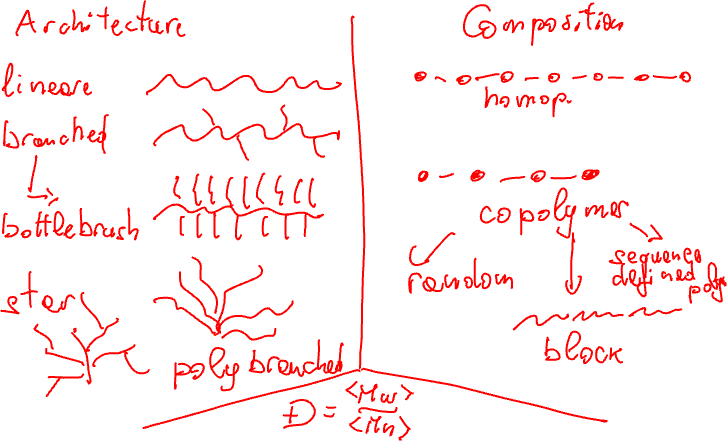 Architecture
lineare
branched
bottlebrush
star
polybranched
Composition
homop.
copolymer
random
sequence
defined polym
block
Đ = <Mw>
<Mn>